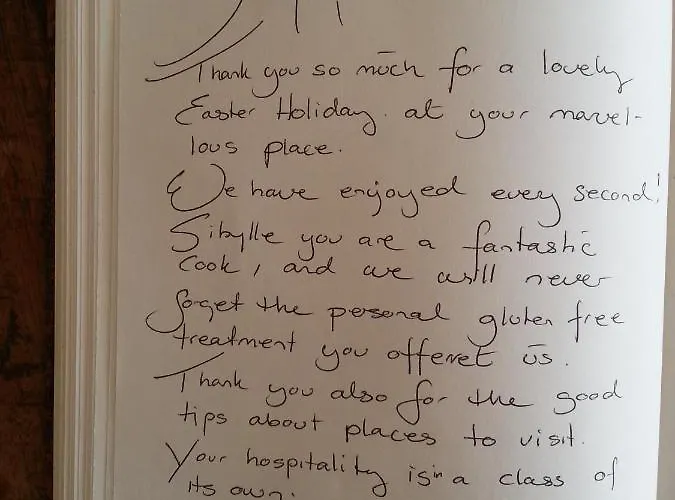 Thank you so much for a lovely
Easter Holiday. at your marvel-
lous place.
We have enjoyed every second!
Sibylle you are a fantastic
cook, and we will never
forget the personal gluten free
treatment you offeret us.
Thank you also for the good
tips about places to visit.
Your hospitality is in a class of
its own.